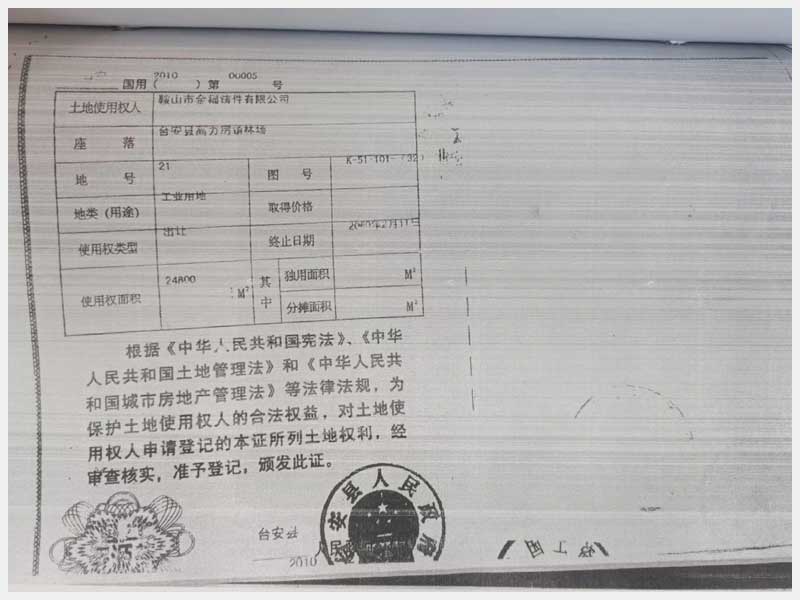 国用（2010）第00005号
土地使用权人 鞍山市金福铸件有限公司
座落 台安县高力房镇林场
地号 21 图号 K-51-101-（32）
地类（用途） 工业用地 取得价格
使用权类型 出让 终止日期 2060年2月11日
使用权面积 24800 M² 其中 独用面积 M²
分摊面积 M²
根据《中华人民共和国宪法》、《中华
人民共和国土地管理法》和《中华人民共
和国城市房地产管理法》等法律法规，为
保护土地使用权人的合法权益，对土地使
用权人申请登记的本证所列土地权利，经
审查核实，准予登记，颁发此证。
台安县
人民政府
台安县人民政府
2010